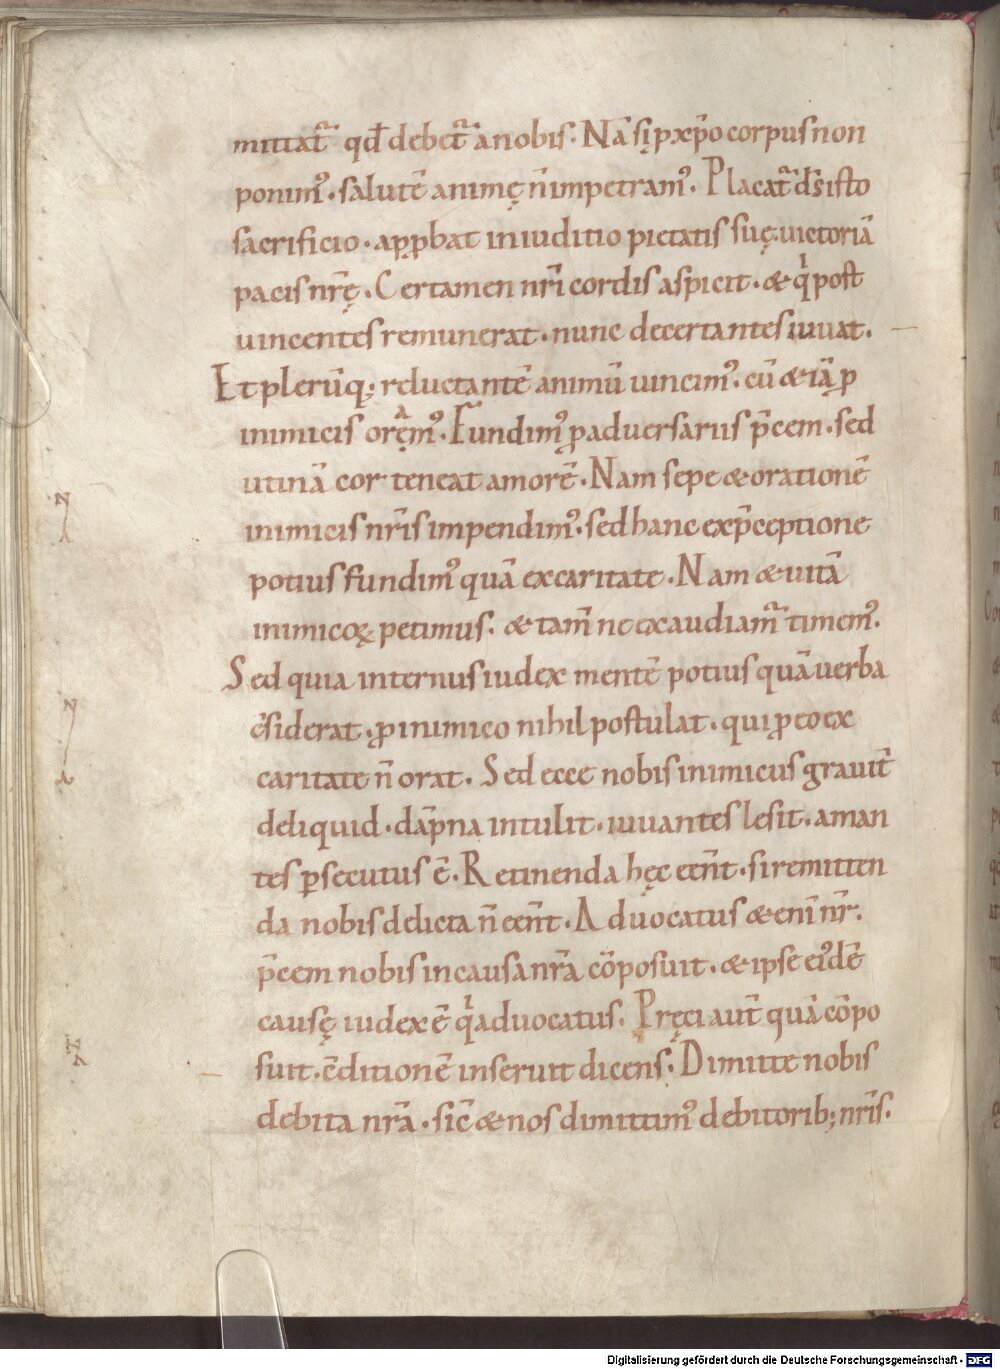 mittat̄ qđ debet̄ a nobis. Nā si ꝓ xp̄o corpus non
ponim᾽. salutē animę n̄ impetram᾽. Placat̄ ds̄ isto
sacrificio. apꝓbat in iuditio pietatis suę uictoriā
pacis nr̄ę. Certamen nr̄i cordis aspicit. & qͥ post
uincentes remunerat. nunc decertantes iuuat.
Et plerūq; reluctantē animū uincim᾽. cū & iā ꝓ
inimicis oręm᾽. Fundim᾽ ꝓ aduersariis p̄cem. sed
utinā cor teneat amorē. Nam sepe & orationē
inimicis nr̄is impendim᾽. sed hanc ex p̄ceptione
potius fundim᾽ quā ex caritate. Nam & uitā
inimicoꝝ petimus. & tam̄ ne exaudiam̄ timem᾽.
Sed quia internus iudex mentē potius quā uerba
c̄siderat. ꝓ inimico nihil postulat. qui ꝓ eo ex
caritate n̄ orat. Sed ecce nobis inimicus grauit̄
deliquid. dāpna intulit. iuuantes lesit. aman
tes ꝑsecutus ē. Retinenda hęc eēnt. si remitten
da nobis delicta n̄ eēnt. Aduocatus & eni nr̄.
p̄cem nobis in causa nr̄a cōposuit. & ipse ei᾽dē
causę iudex ē qͥ aduocatus. Pręci aut̄ quā cōpo
suit. c̄ditionē inseruit dicens. Dimitte nobis
debita nr̄a. sic̄ & nos dimittim᾽ debitorib; nr̄is.
Digitalisierung gefördert durch die Deutsche Forschungsgemeinschaft - DFG